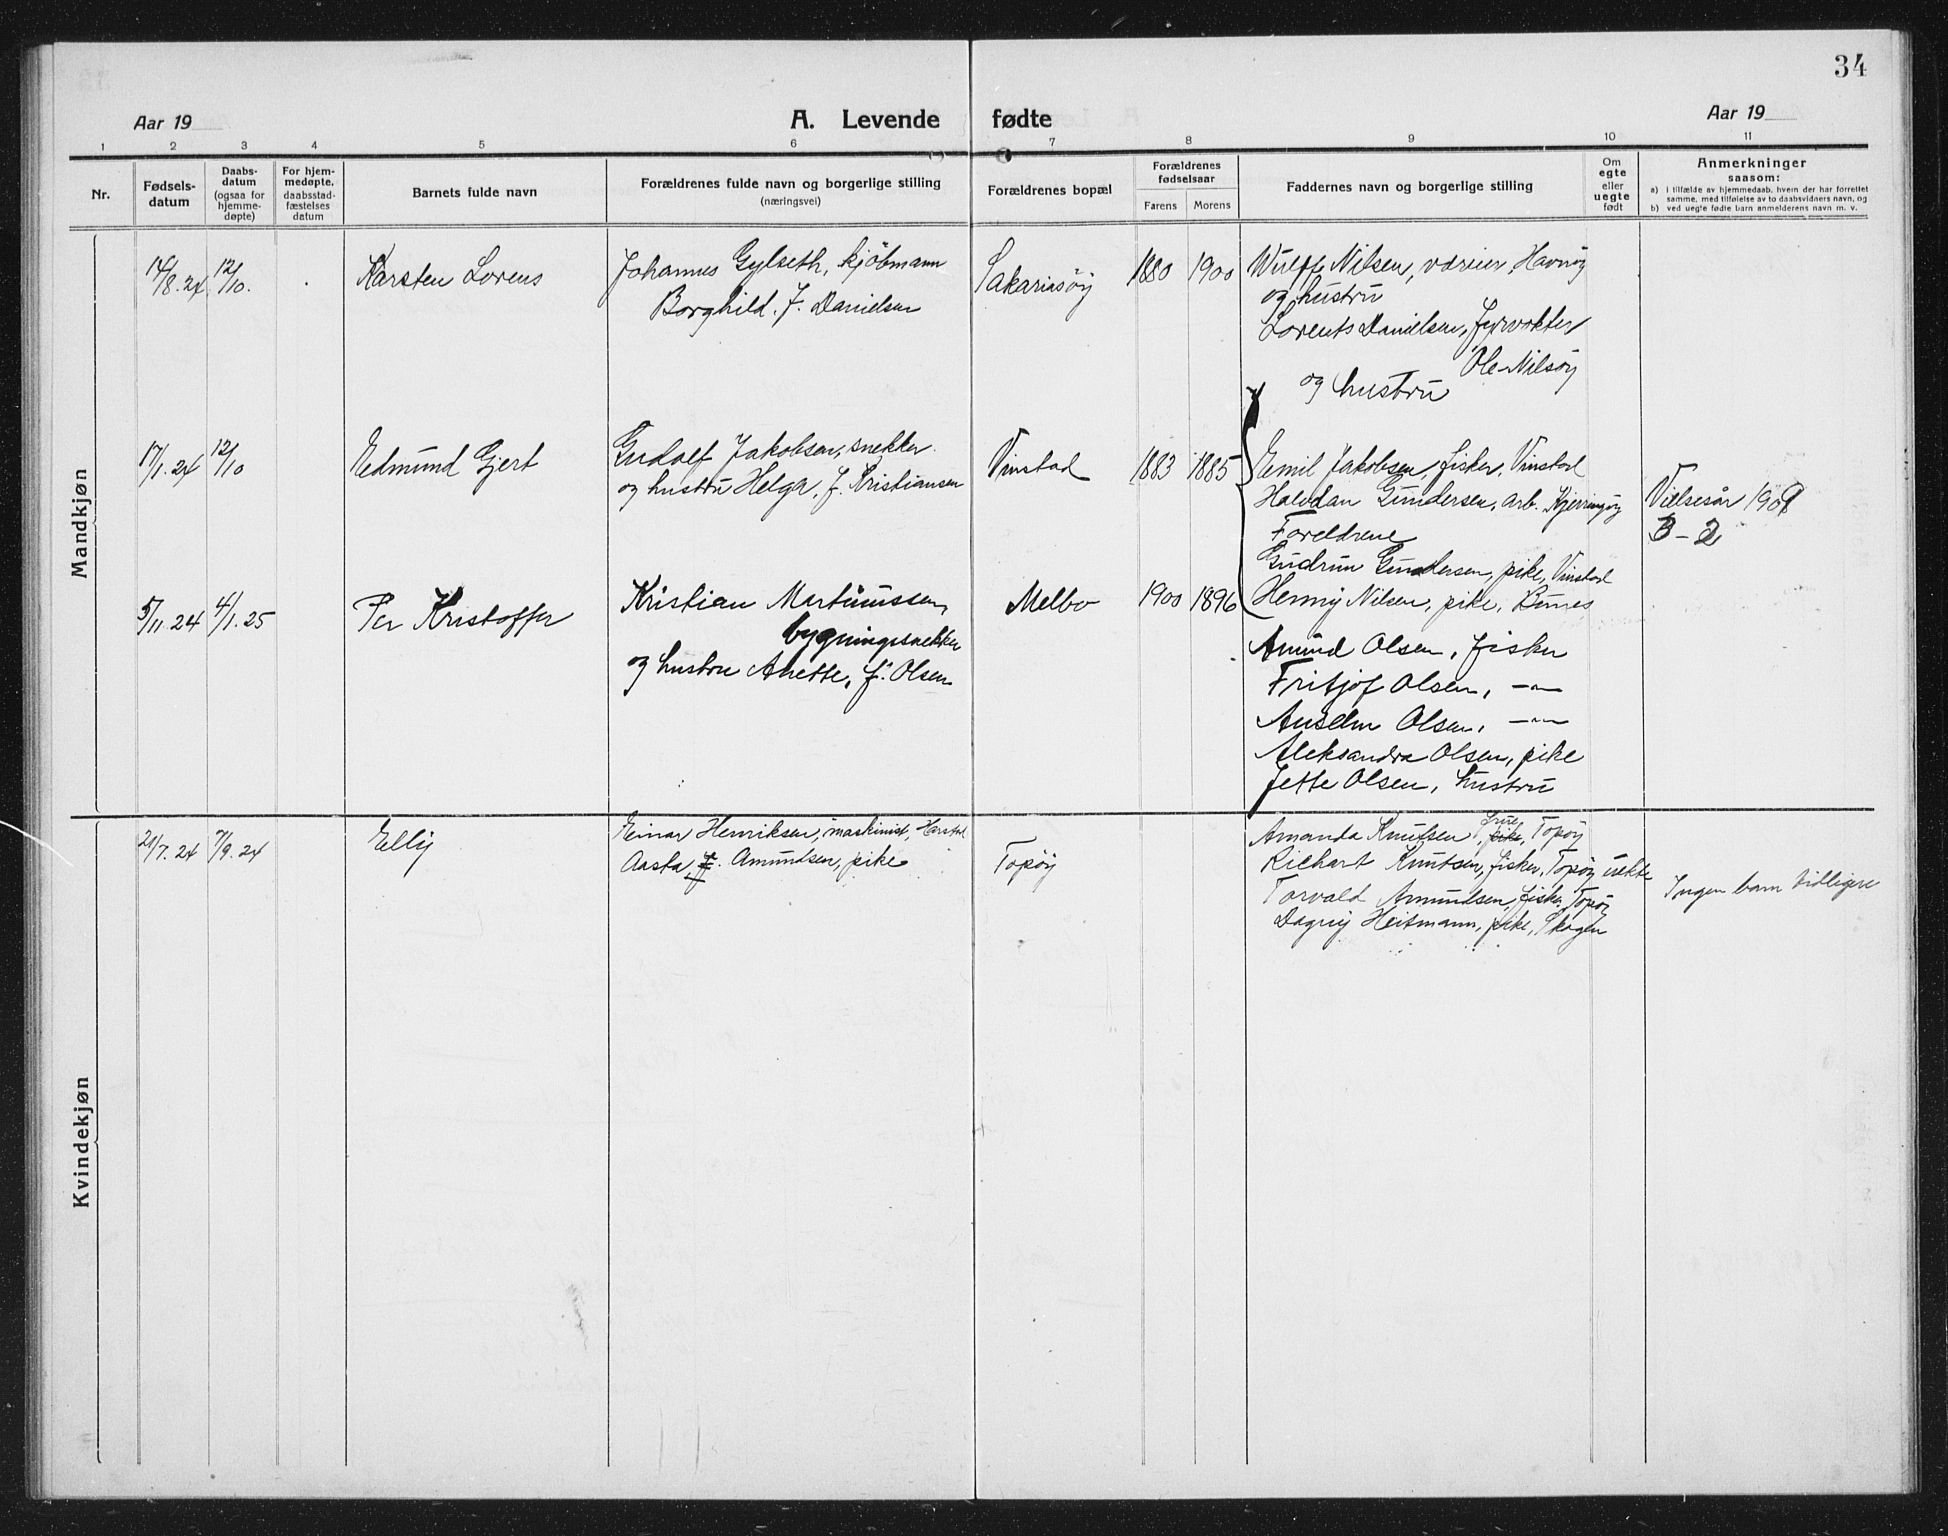 34
Aar 19
A. Levende fødte
Aar 19
1 2 3 4 5 6 7 8 9 10 11
Nr.
Fødsels-
datum
Daabs-
datum
(ogsaa for
hjemme-
døpte)
For hjem-
medøpte,
daabsstad-
fæstelses
datum
Barnets fulde navn
Forældrenes fulde navn og borgerlige stilling
(næringsvei)
Forældrenes bopæl
Forældrenes
fødselsaar
Farens Morens
Faddernes navn og borgerlige stilling
Om
egte
eller
uegte
født
Anmerkninger
saasom:
a) i tilfælde av hjemmedaab, hvem der har forrettet
samme, med tilføielse av to daabsvidners navn, og
b) ved uegte fødte barn anmelderens navn m. v.
Mandkjøn
14/8.24 12/10.
Karsten Lorens
Johannes Gylseth, kjøbmann
Borghild. f. Danielsen
Sakariasøy
1880 1900
Wulff Nilsen, væreier, Havnøy
og hustru
Lorents Danielsen, fyrvokter
Ole-Nilsøy
og hustru
17/1.24 12/10
Edmund Gjert
Gudolf Jakobsen, snekker
og hustru Helga, f. Kristiansen
Vinstad
1883 1885
Emil Jakobsen, fisker, Vinstad
Halvdan Gundersen, arb. Kjerringøy
Foreldrene
Gudrun Gundersen, pike, Vinstad
Henny Nilsen, pike, Bunes
Vielsesår 1909
3-2
5/11.24 4/1.25
Per Kristoffer
Kristian Martinussen,
bygningssnekker
og hustru Anette, f. Olsen
Melbo
1900 1896
Amund Olsen, fisker
Fritjof Olsen, -"-
Anselm Olsen, -"-
Aleksandra Olsen, pike
Jette Olsen, hustru
Kvindekjøn
21/7.24 7/9.24
Elly
Einar Henriksen, maskinist, Harstad
Aasta, f. Amundsen, pike
Topøy
Amanda Knutsen, pike, frue, Topøy
Richart Knutsen, fisker, Topøy
Torvald Amundsen, fisker, Topøy
Dagny Heitmann, pike, Skogen
uekte
Ingen barn tidligere